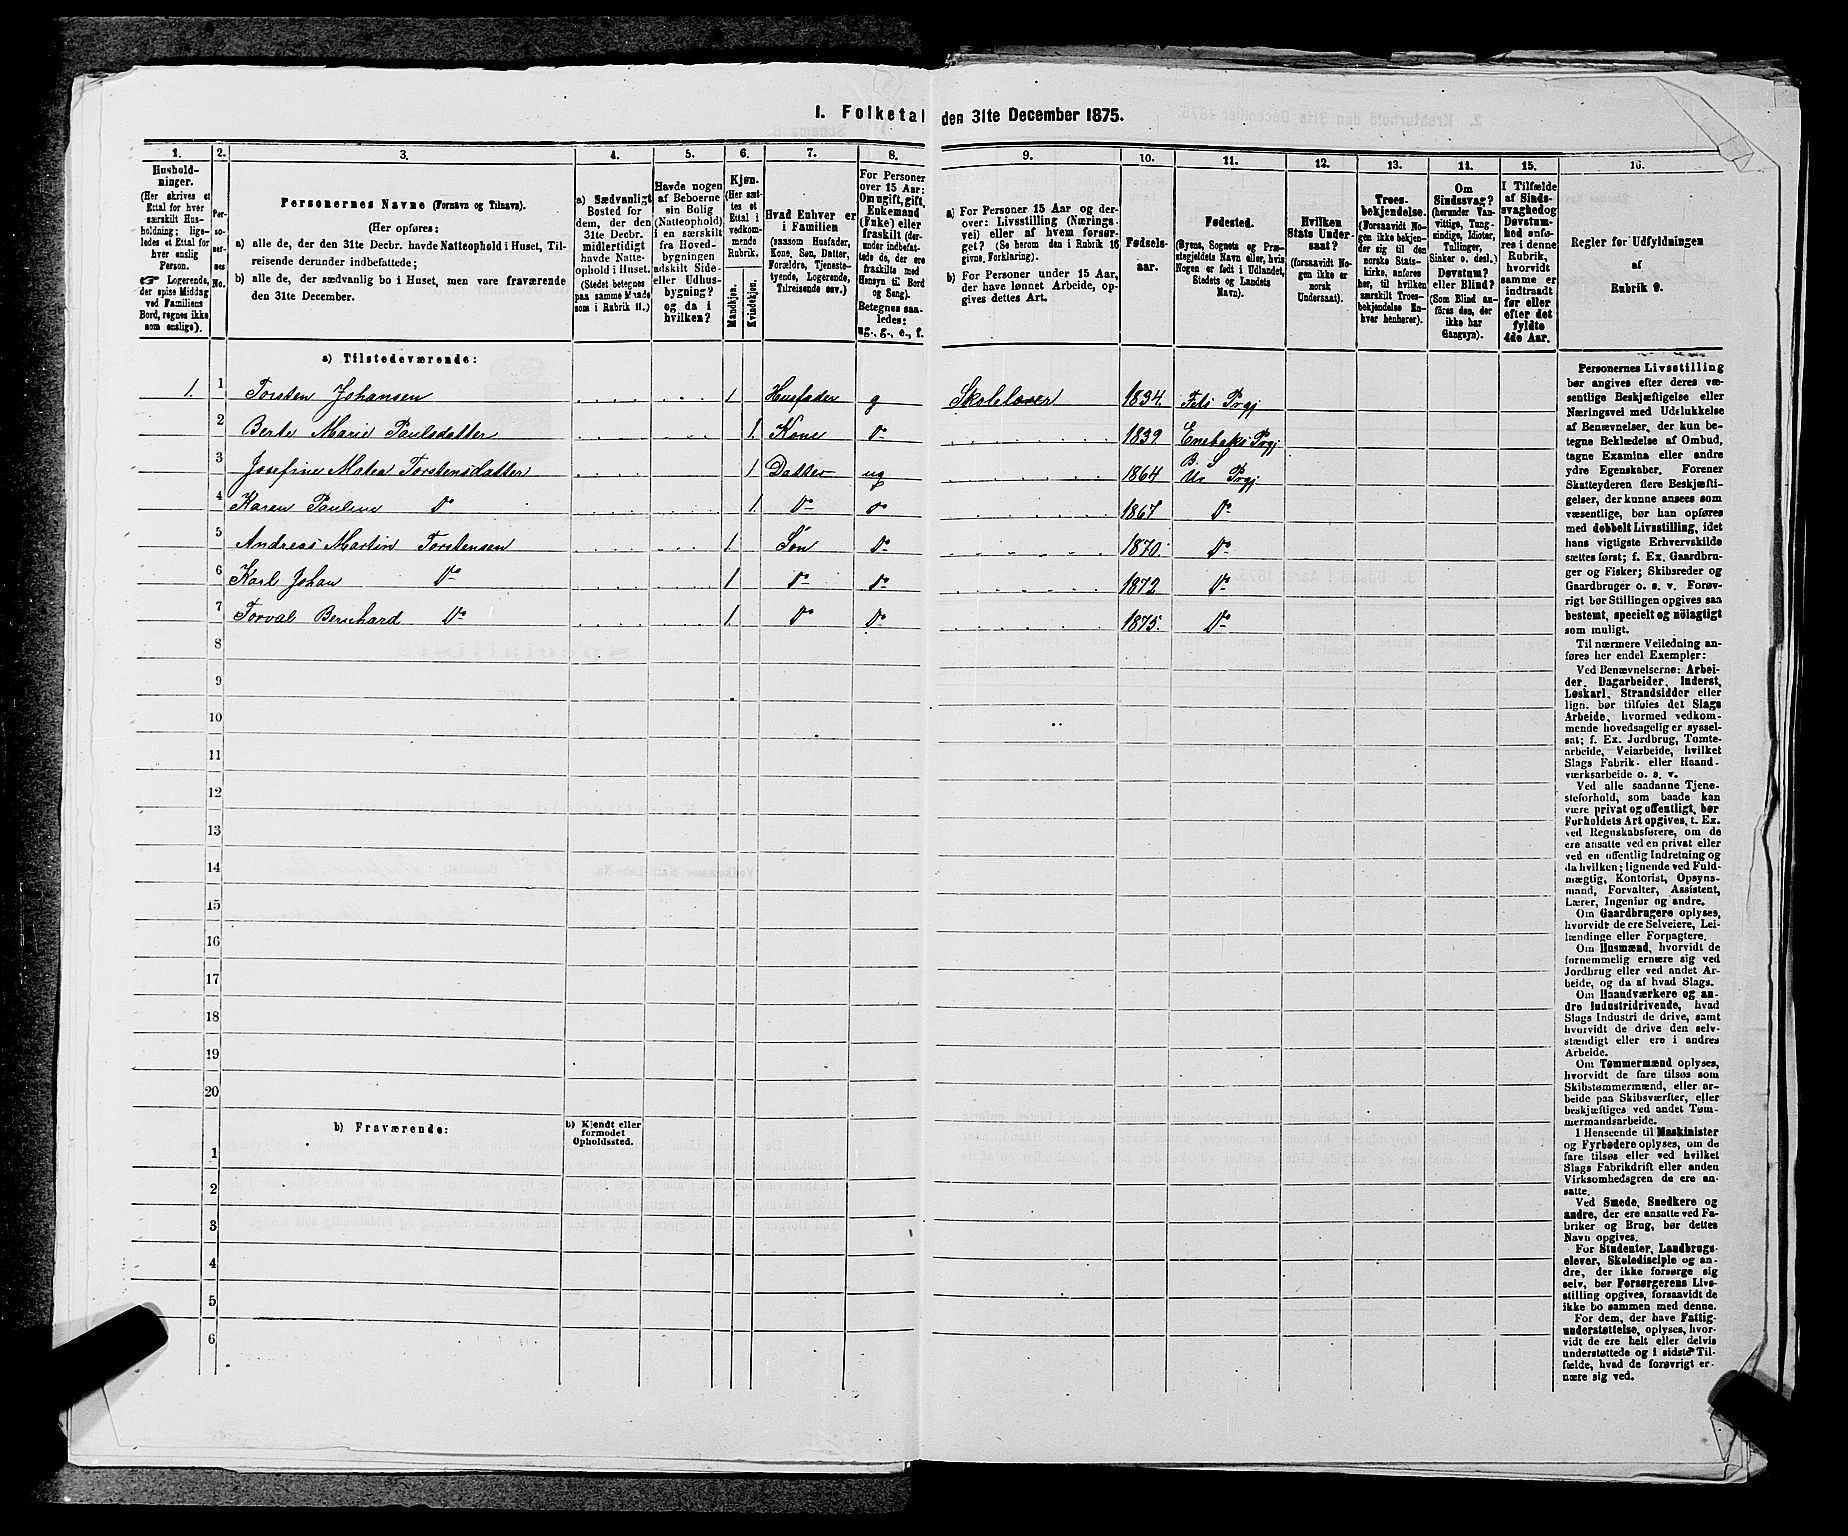 I. Folketal den 31te December 1875.
1. 2. 3. 4. 5. 6. 7. 8. 9. 10. 11. 12. 13. 14. 15. 16.
Husholdninger.
(Her skrives et
Ettal for hver
særskilt Husholdning; ligeledes
et Ettal for
hver enslig
Person.
Logerende,
der spise Middag
ved Familiens
Bord, regnes ikke
som enslige).
Personernes No.
Personernes Navne (Fornavn og Tilnavn).
(Her opføres:
a) alle de, der den 31te Decbr. havde Natteophold i Huset, Tilreisende
derunder indbefattede;
b) alle de, der sædvanlig bo i Huset, men vare fraværende
den 31te December.
a) Sædvanligt
Bosted for
dem, der den
31te Decbr.
midlertidigt
havde Natteophold
i Huset.
(Stedet betegnes
paa samme Maade
som i Rubrik 11.)
Havde nogen
af Beboerne
sin Bolig
(Natteophold)
i en særskilt
fra Hovedbygningen
adskilt Side-
eller Udhusbygning?
og da i
hvilken?
Kjøn.
(Her sættes
et
Ettal i
vedkommende
Rubrik.
Mandkjøn.
Kvindekjøn.
Hvad Enhver er
i Familien
(saasom Husfader,
Kone, Søn, Datter,
Forældre, Tjenestetyende,
Logerende,
Tilreisende osv.)
For Personer
over 15 Aar:
Om ugift, gift,
Enkemand
(Enke) eller
fraskilt (derunder
indbefattede
de, der ere
fraskilte med
Hensyn til Bord
og Seng).
Betegnes saaledes:
ug., g., e., f.
a) For Personer 15 Aar og derover:
Livsstilling (Næringsvei)
eller af hvem forsørget?
(Se herom den i Rubrik 16
givne Forklaring).
b) For Personer under 15 Aar,
der have lønnet Arbeide, opgives
dettes Art.
Fødselsaar.
Fødested.
(Byens, Sognets og Præstegjeldets
Navn eller, hvis
Nogen er født i Udlandet,
Stedets og Landets
Navn).
Hvilken
Stats Undersaat?
(forsaavidt Nogen
ikke er
norsk
Undersaat).
Troesbekjendelse.
(Forsaavidt Nogen
ikke bekjender
sig til den
norske Statskirke,
anføres
her, til hvilken
særskilt Troesbekjendelse
Enhver
henhører).
Om
Sindssvag?
(herunder Vanvittige,
Tungsindige,
Idioter,
Tullinger,
Sinker o. desl.)
Døvstum?
eller Blind?
(Som Blind anføres
den, der
ikke har
Gangsyn).
I Tilfælde
af Sindssvaghed
og
Døvstumhed
anføres
i denne
Rubrik,
hvorvidt
samme er
indtraadt
før eller
efter det
fyldte
4de Aar.
Regler for Udfyldningen
af
Rubrik 9.
a) Tilstedeværende:
1. 1 Torsten Johansen 1 Husfader g Skolelærer 1834. Fets Prgj
2 Berte Marie Paulsdatter 1. Kone Do 1839 Enebaks Prgj
3 Josefine Matea Torstensdatter 1 Datter ug 1864 Prgj
4 Karen Pauline Do 1. Do Do 1867 Do
5 Andreas Martin Torstensen 1. Søn Do 1870. Do
6 Karl Johan Do 1. Do Do 1872 Do
7 Torval Bernhard Do 1. Do Do 1875. Do
8
9
10
11
12
13
14
15
16
17
18
19
20
b) Fraværende:
b) Kjendt eller
formodet
Opholdssted.
1
2
3
4
5
6
Personernes Livsstilling
bør angives efter deres væsentlige
Beskjæftigelse eller
Næringsvei med Udelukkelse
af Benævnelser, der kun betegne
Beklædelse af Ombud,
tagne Examina eller andre
ydre Egenskaber. Forener
Skatteyderen flere Beskjæftigelser,
der kunne ansees som
væsentlige, bør han opføres
med dobbelt Livsstilling, idet
hans vigtigste Erhvervskilde
sættes først; f. Ex. Gaardbruger
og Fisker; Skibsreder og
Gaardbruger o. s. v. Forøvrigt
bør Stillingen opgives saa
bestemt, specielt og nöiagtigt
som muligt.
Til nærmere Veiledning anføres
her endel Exempler:
Ved Benævnelserne: Arbeider,
Dagarbeider, Inderst,
Løskarl, Strandsidder eller
lign. bør tilføies det Slags
Arbeide, hvormed vedkommende
hovedsagelig er sysselsat;
f. Ex. Jordbrug, Tomtearbeide,
Veiarbeide, hvilket
Slags Fabrik- eller Haandværksarbeide
o. s. v.
Ved alle saadanne Tjenesteforhold,
som baade kan
være privat og offentligt, bør
Forholdets Art opgives, t. Ex.
ved Regnskabsførere, om de
ere ansatte ved en privat eller
ved en offentlig Indretning og
da hvilken; lignende ved Fuldmægtig,
Kontorist, Opsynsmand,
Forvalter, Assistent,
Lærer, Ingeniør og andre.
Om Gaardbrugere oplyses,
hvorvidt de ere Selveiere, Leilændinge
eller Forpagtere.
Om Husmænd, hvorvidt de
fornemmelig ernære sig ved
Jordbrug eller ved andet Arbeide,
og da af hvad Slags.
Om Haandværkere og andre
Industridrivende, hvad
Slags Industri de drive, samt
hvorvidt de drive den selvstændigt
eller ere i andres
Arbeide.
Om Tømmermænd oplyses,
hvorvidt de fare tilsøs som
Skibstømmermænd, eller arbeide
paa Skibsværfter, eller
beskjæftiges ved andet Tømmermandsarbeide.
I Henseende til Maskinister
og Fyrbødere oplyses, om de
fare tilsøs eller ved hvilket
Slags Fabrikdrift eller anden
Virksomhedsgren de ere ansatte.
Ved Smede, Snedkere og
andre, der ere ansatte ved Fabriker
og Brug, bør dettes
Navn opgives.
For Studenter, Landbrugselever,
Skoledisciple og andre,
der ikke forsørge sig
selv, bør Forsørgerens Livsstilling
opgives, forsaavidt de
ikke bo sammen med denne.
For dem, der have Fattigunderstøttelse,
oplyses, hvorvidt
de ere helt eller delvis
understøttede og i sidste Tilfælde,
hvad de forøvrigt ernære
sig ved.